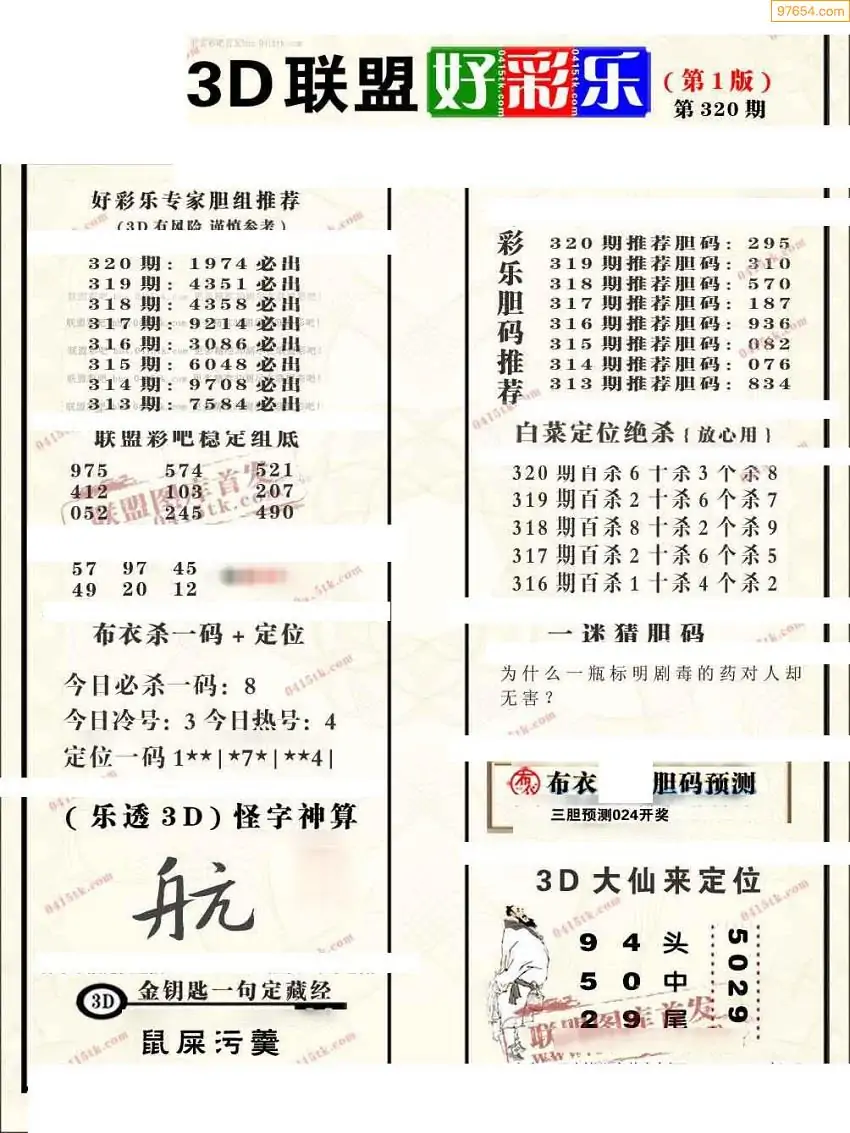 97654.com
3D联盟好彩乐
(第1版)
第320期
好彩乐专家胆组推荐
(3D有风险 谨慎参考)
320期: 1974必出
319期: 4351必出
318期: 4358必出
317期: 9214必出
316期: 3086必出
315期: 6048必出
314期: 9708必出
313期: 7584必出
联盟彩吧稳定组底
975 574 521
412 103 207
052 245 490
联盟图库首发
0415tk.com
57 97 45
49 20 12
布衣杀一码+定位
今日必杀一码: 8
今日冷号: 3 今日热号: 4
定位一码1**|*7*|**4|
(乐透3D)怪字神算
航
3D 金钥匙一句定藏经
鼠屎污羹
彩乐胆码推荐
320期推荐胆码: 295
319期推荐胆码: 310
318期推荐胆码: 570
317期推荐胆码: 187
316期推荐胆码: 936
315期推荐胆码: 082
314期推荐胆码: 076
313期推荐胆码: 834
白菜定位绝杀{放心用}
320期百杀6十杀3个杀8
319期百杀2十杀6个杀7
318期百杀8十杀2个杀9
317期百杀2十杀6个杀5
316期百杀1十杀4个杀2
一迷猜胆码
为什么一瓶标明剧毒的药对人却
无害?
布衣 胆码预测
三胆预测024开奖
3D大仙来定位
9 4 头
5 0 中
2 9 尾
5029
联盟图库首发